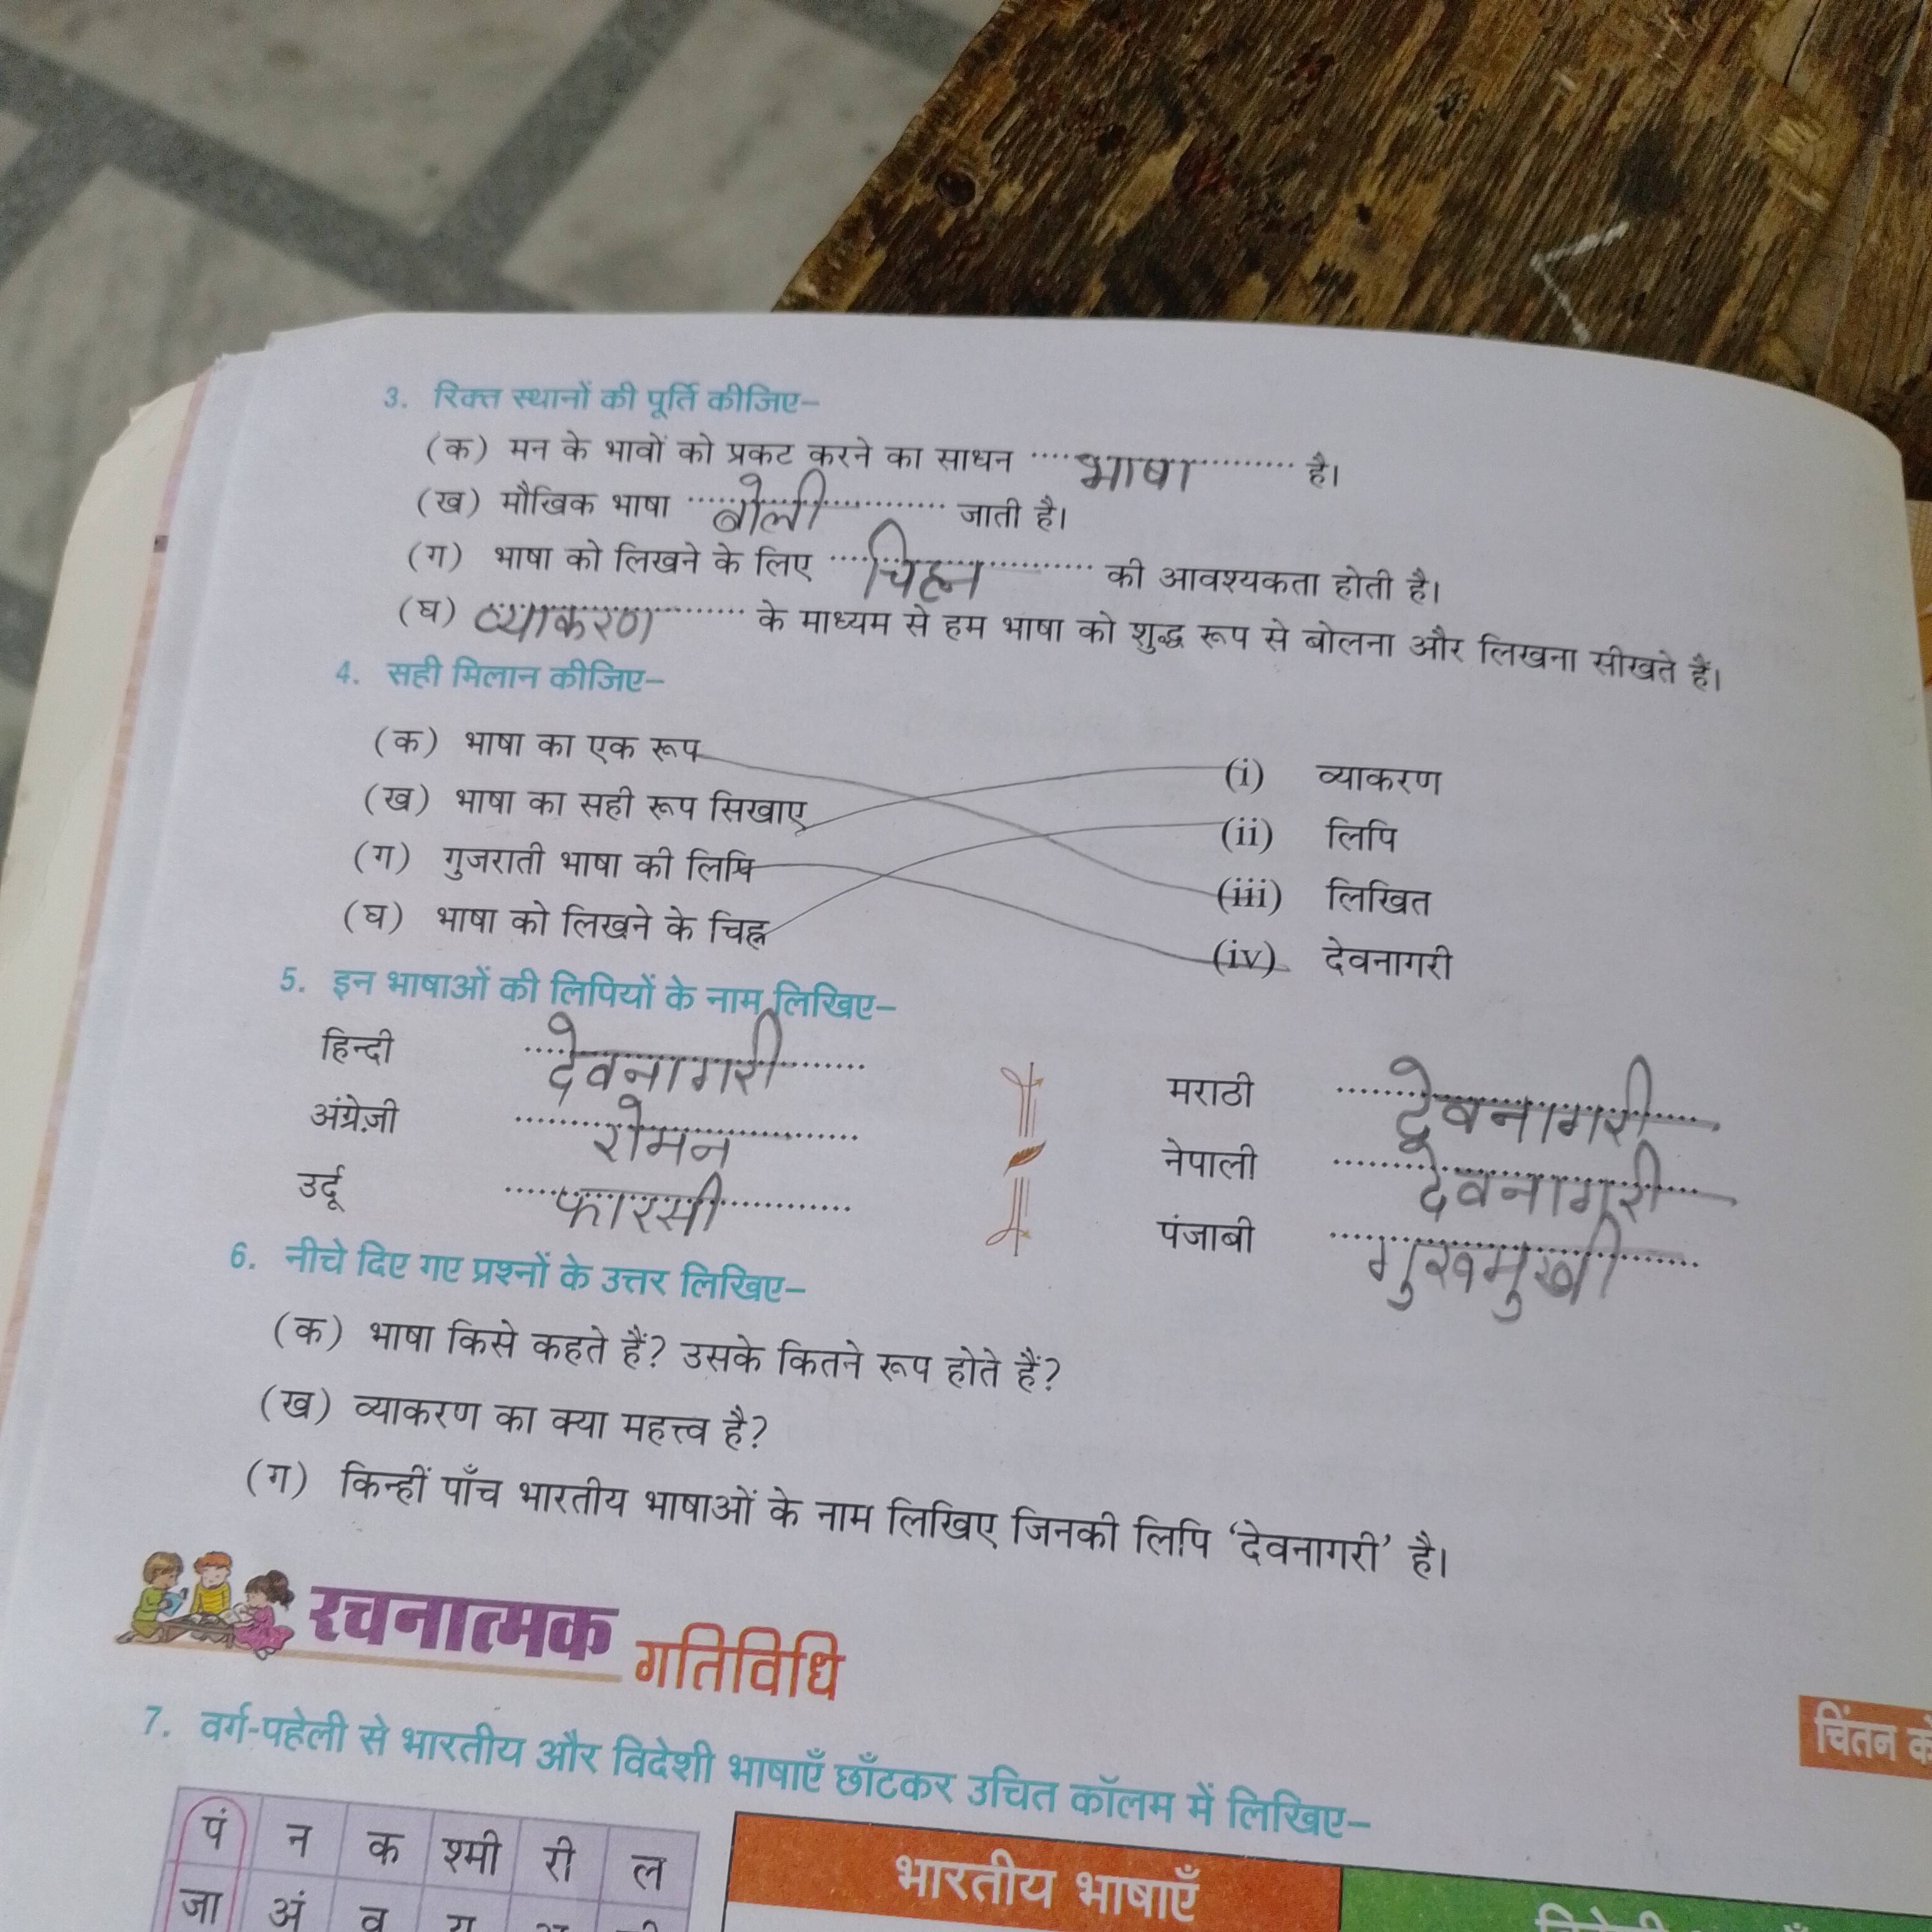 3. रिक्त स्थानों की पूर्ति कीजिए–
(क) मन के भावों को प्रकट करने का साधन ....भाषा............ है।
(ख) मौखिक भाषा ......बोली............ जाती है।
(ग) भाषा को लिखने के लिए ....चिह्न............ की आवश्यकता होती है।
(घ) व्याकरण........ के माध्यम से हम भाषा को शुद्ध रूप से बोलना और लिखना सीखते हैं।
4. सही मिलान कीजिए–
(क) भाषा का एक रूप (i) व्याकरण
(ख) भाषा का सही रूप सिखाए (ii) लिपि
(ग) गुजराती भाषा की लिपि (iii) लिखित
(घ) भाषा को लिखने के चिह्न (iv) देवनागरी
5. इन भाषाओं की लिपियों के नाम लिखिए–
हिन्दी ....देवनागरी........ मराठी ........देवनागरी....
अंग्रेज़ी ........रोमन............ नेपाली ........देवनागरी....
उर्दू .....फारसी............ पंजाबी .....गुरुमुखी........
6. नीचे दिए गए प्रश्नों के उत्तर लिखिए–
(क) भाषा किसे कहते हैं? उसके कितने रूप होते हैं?
(ख) व्याकरण का क्या महत्त्व है?
(ग) किन्हीं पाँच भारतीय भाषाओं के नाम लिखिए जिनकी लिपि ‘देवनागरी’ है।
रचनात्मक गतिविधि
चिंतन
7. वर्ग-पहेली से भारतीय और विदेशी भाषाएँ छाँटकर उचित कॉलम में लिखिए–
पं न क श्मी री ल
जा अं व
भारतीय भाषाएँ